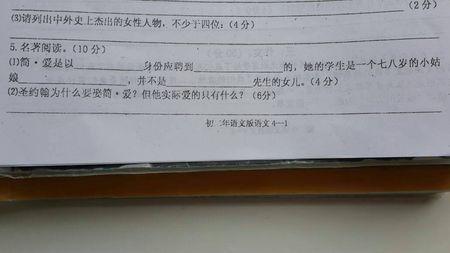 (2分)
(3)请列出中外史上杰出的女性人物,不少于四位:(4分)
5.名著阅读。(10分)
(1)简·爱是以____________身份应聘到______________的,她的学生是一个七八岁的小姑
娘______________,并不是______________先生的女儿。(4分)
(2)圣约翰为什么要娶简·爱?但他实际爱的只有什么?(6分)
初二年语文版语文4—1